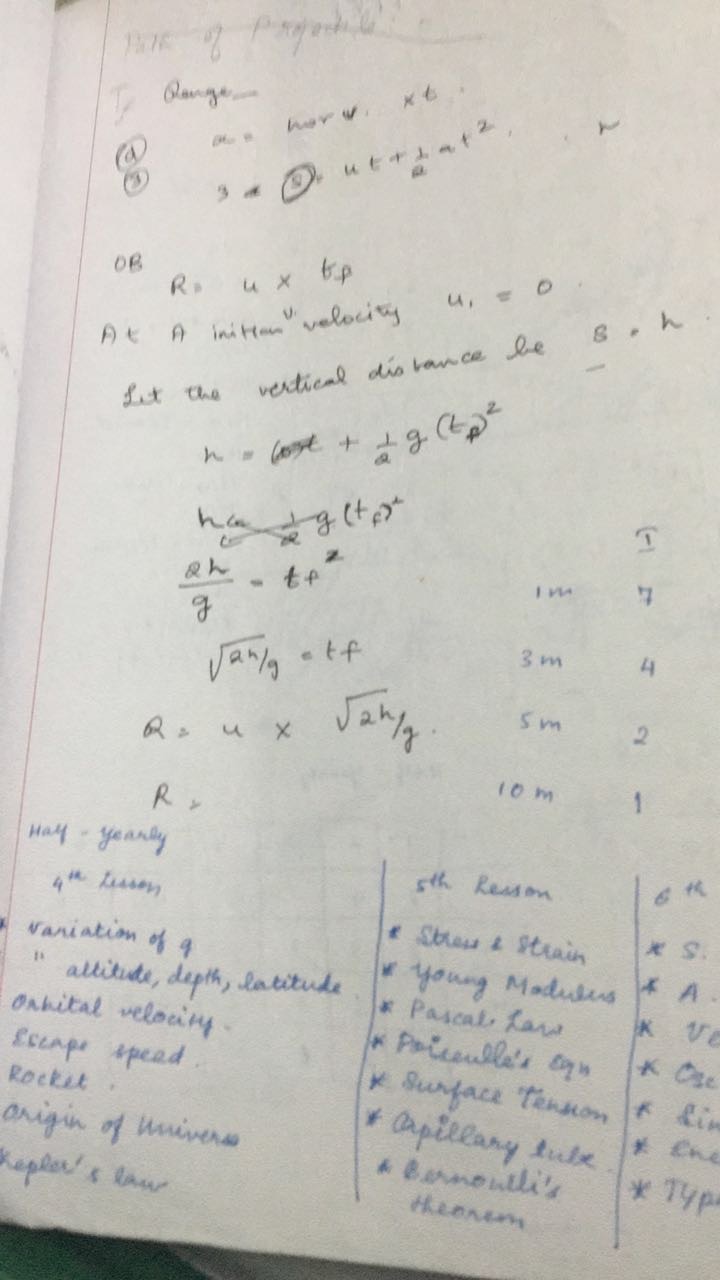 Path of Projectile
I, Range
(d) x = hor v. x t.
(s) s = (s) = ut + 1/2 at². h
OB
R = u x tf
At A initial v. velocity u₁ = 0.
Let the vertical distance be s = h
h = + 1/2 g (tf)²
h = 1/2 g (tf)²
2h/g = tf²
√2h/g = tf
R = u x √2h/g.
R =
I
1m 7
3m 4
5m 2
10m 1
Half - yearly
4th Lesson
* variation of g
" altitude, depth, latitude
Orbital velocity.
Escape speed.
Rocket.
Origin of Universe
Kepler's law
5th Lesson
* Stress & Strain
* Young Modulus
* Pascal's Law
* Poiseulle's Eqn
* Surface Tension
* Capillary tube
* Bernoulli's
theorem
6th
* S.
* A.
* Ve
* Osc
* Sim
* Ene
* Type